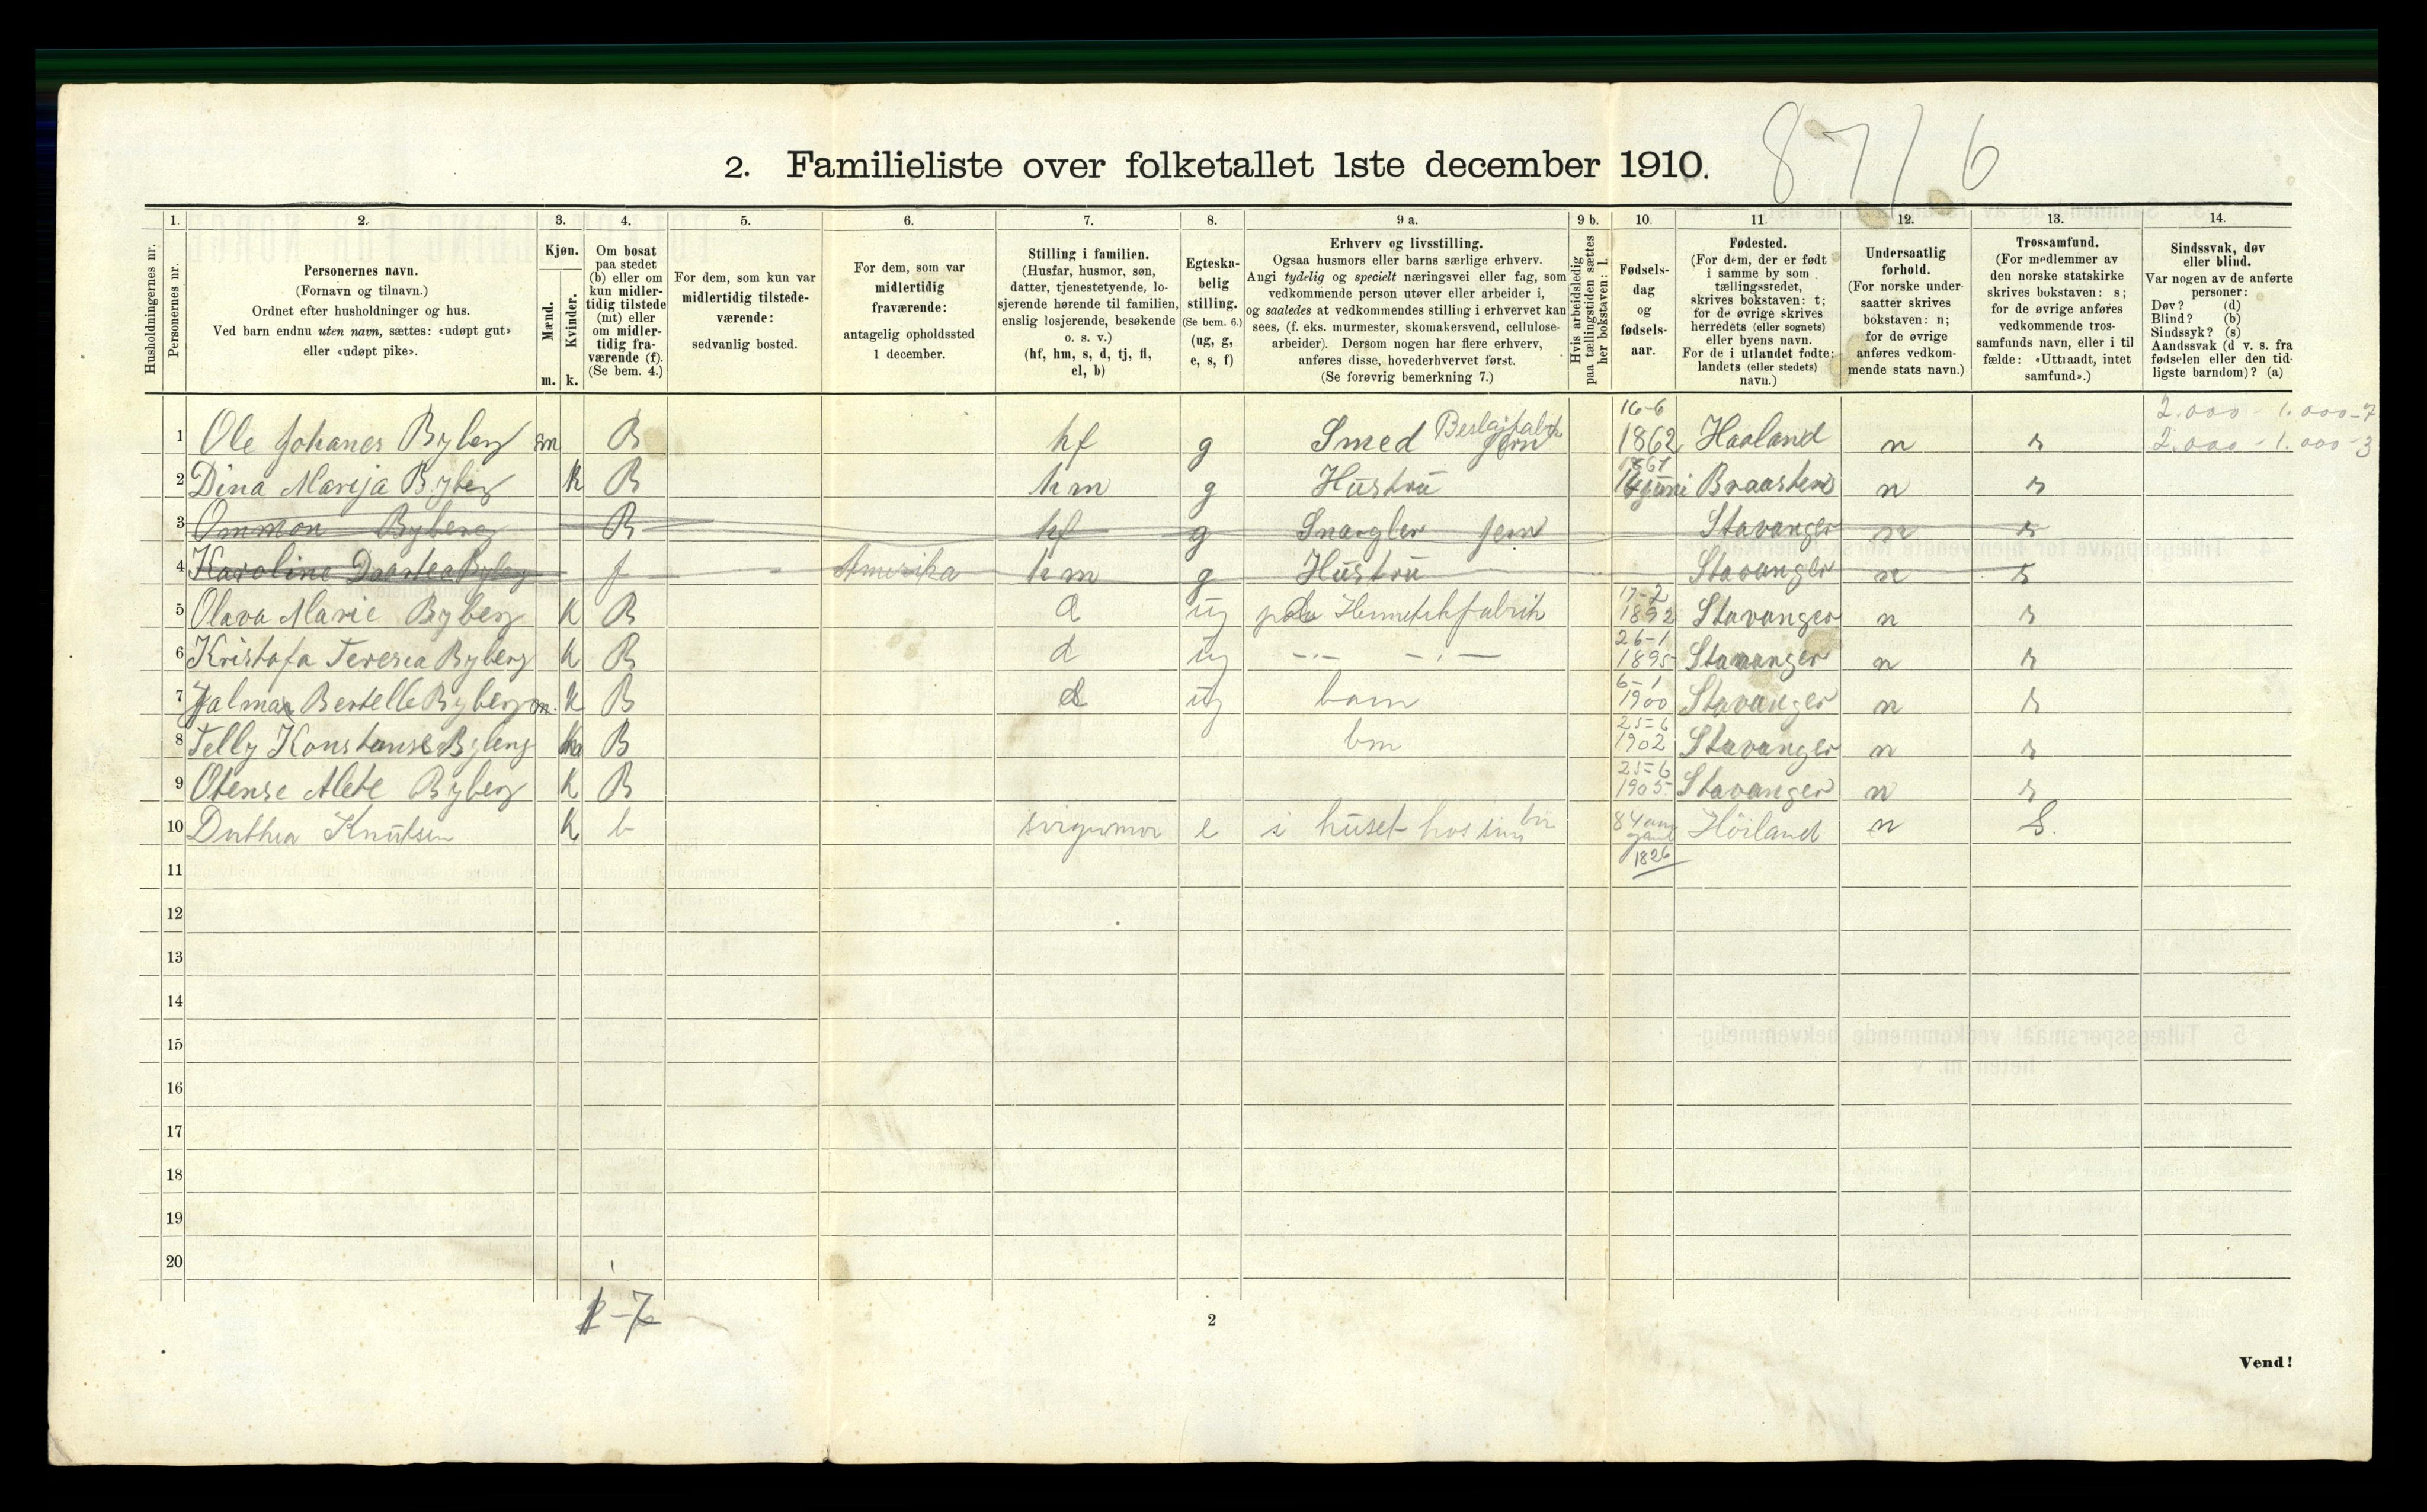 87/6
2. Familieliste over folketallet 1ste december 1910.
Husholdningernes nr.
1. Personernes nr.
2. Personernes navn. (Fornavn og tilnavn.) Ordnet efter husholdninger og hus. Ved barn endnu uten navn, sættes: «udøpt gut» eller «udøpt pike».
3. Kjøn. Mænd. m. Kvinder. k.
4. Om bosat paa stedet (b) eller om kun midlertidig tilstede (mt) eller om midlertidig fraværende (f). (Se bem. 4.)
5. For dem, som kun var midlertidig tilstedeværende: sedvanlig bosted.
6. For dem, som var midlertidig fraværende: antagelig opholdssted 1 december.
7. Stilling i familien. (Husfar, husmor, søn, datter, tjenestetyende, losjerende hørende til familien, enslig losjerende, besøkende o. s. v.) (hf, hm, s, d, tj, fl, el, b)
8. Egteskabelig stilling. (Se bem. 6.) (ug, g, e, s, f)
9 a. Erhverv og livsstilling. Ogsaa husmors eller barns særlige erhverv. Angi tydelig og specielt næringsvei eller fag, som vedkommende person utøver eller arbeider i, og saaledes at vedkommendes stilling i erhvervet kan sees, (f. eks. murmester, skomakersvend, cellulosearbeider). Dersom nogen har flere erhverv, anføres disse, hovederhvervet først. (Se forøvrig bemerkning 7.)
9 b. Hvis arbeidsledig paa tællingstiden sættes her bokstaven: l.
10. Fødselsdag og fødselsaar.
11. Fødested. (For dem, der er født i samme by som tællingsstedet, skrives bokstaven: t; for de øvrige skrives herredets (eller sognets) eller byens navn. For de i utlandet fødte: landets (eller stedets) navn.)
12. Undersaatlig forhold. (For norske undersaatter skrives bokstaven: n; for de øvrige anføres vedkommende stats navn.)
13. Trossamfund. (For medlemmer av den norske statskirke skrives bokstaven: s; for de øvrige anføres vedkommende trossamfunds navn, eller i tilfælde: «Uttraadt, intet samfund».)
14. Sindssvak, døv eller blind. Var nogen av de anførte personer: Døv? (d) Blind? (b) Sindssyk? (s) Aandssvak (d v. s. fra fødselen eller den tidligste barndom)? (a)
1 Ole Johanes Byberg m B hf g Smed jern 16-6 1862 Haaland n s 2.000 - 1.000-7
2.000 - 1.000-3
2 Dina Marija Byberg k B hm g Hustru 1861 14 juni Braastend n s
3 Ommon Byberg B hf g Snargler jern Stavanger n s
4 Karoline Daartea Byberg f Amerika hm g Hustru Stavanger n s
5 Olava Marie Byberg K B d ug paa Hermetikfabrik 17-2 1892 Stavanger n s
6 Kristofa Teresea Byberg K B d ug -·- -·- 26-1 1895 Stavanger n s
7 Hjalmar Bertelle Byberg m. K B d ug barn 6-1 1900 Stavanger n s
8 Telly Konstanse Byberg B 25-6 1902 Stavanger n s
9 Otense Alete Byberg K B 25-6 1905 Stavanger n s
10 Dorthea Knutsen K b svigumor e i huset hos sin 84 1826 Höiland n S.
11
12
13
14
15
16
17
18
19
20
1-7
2
Vend!